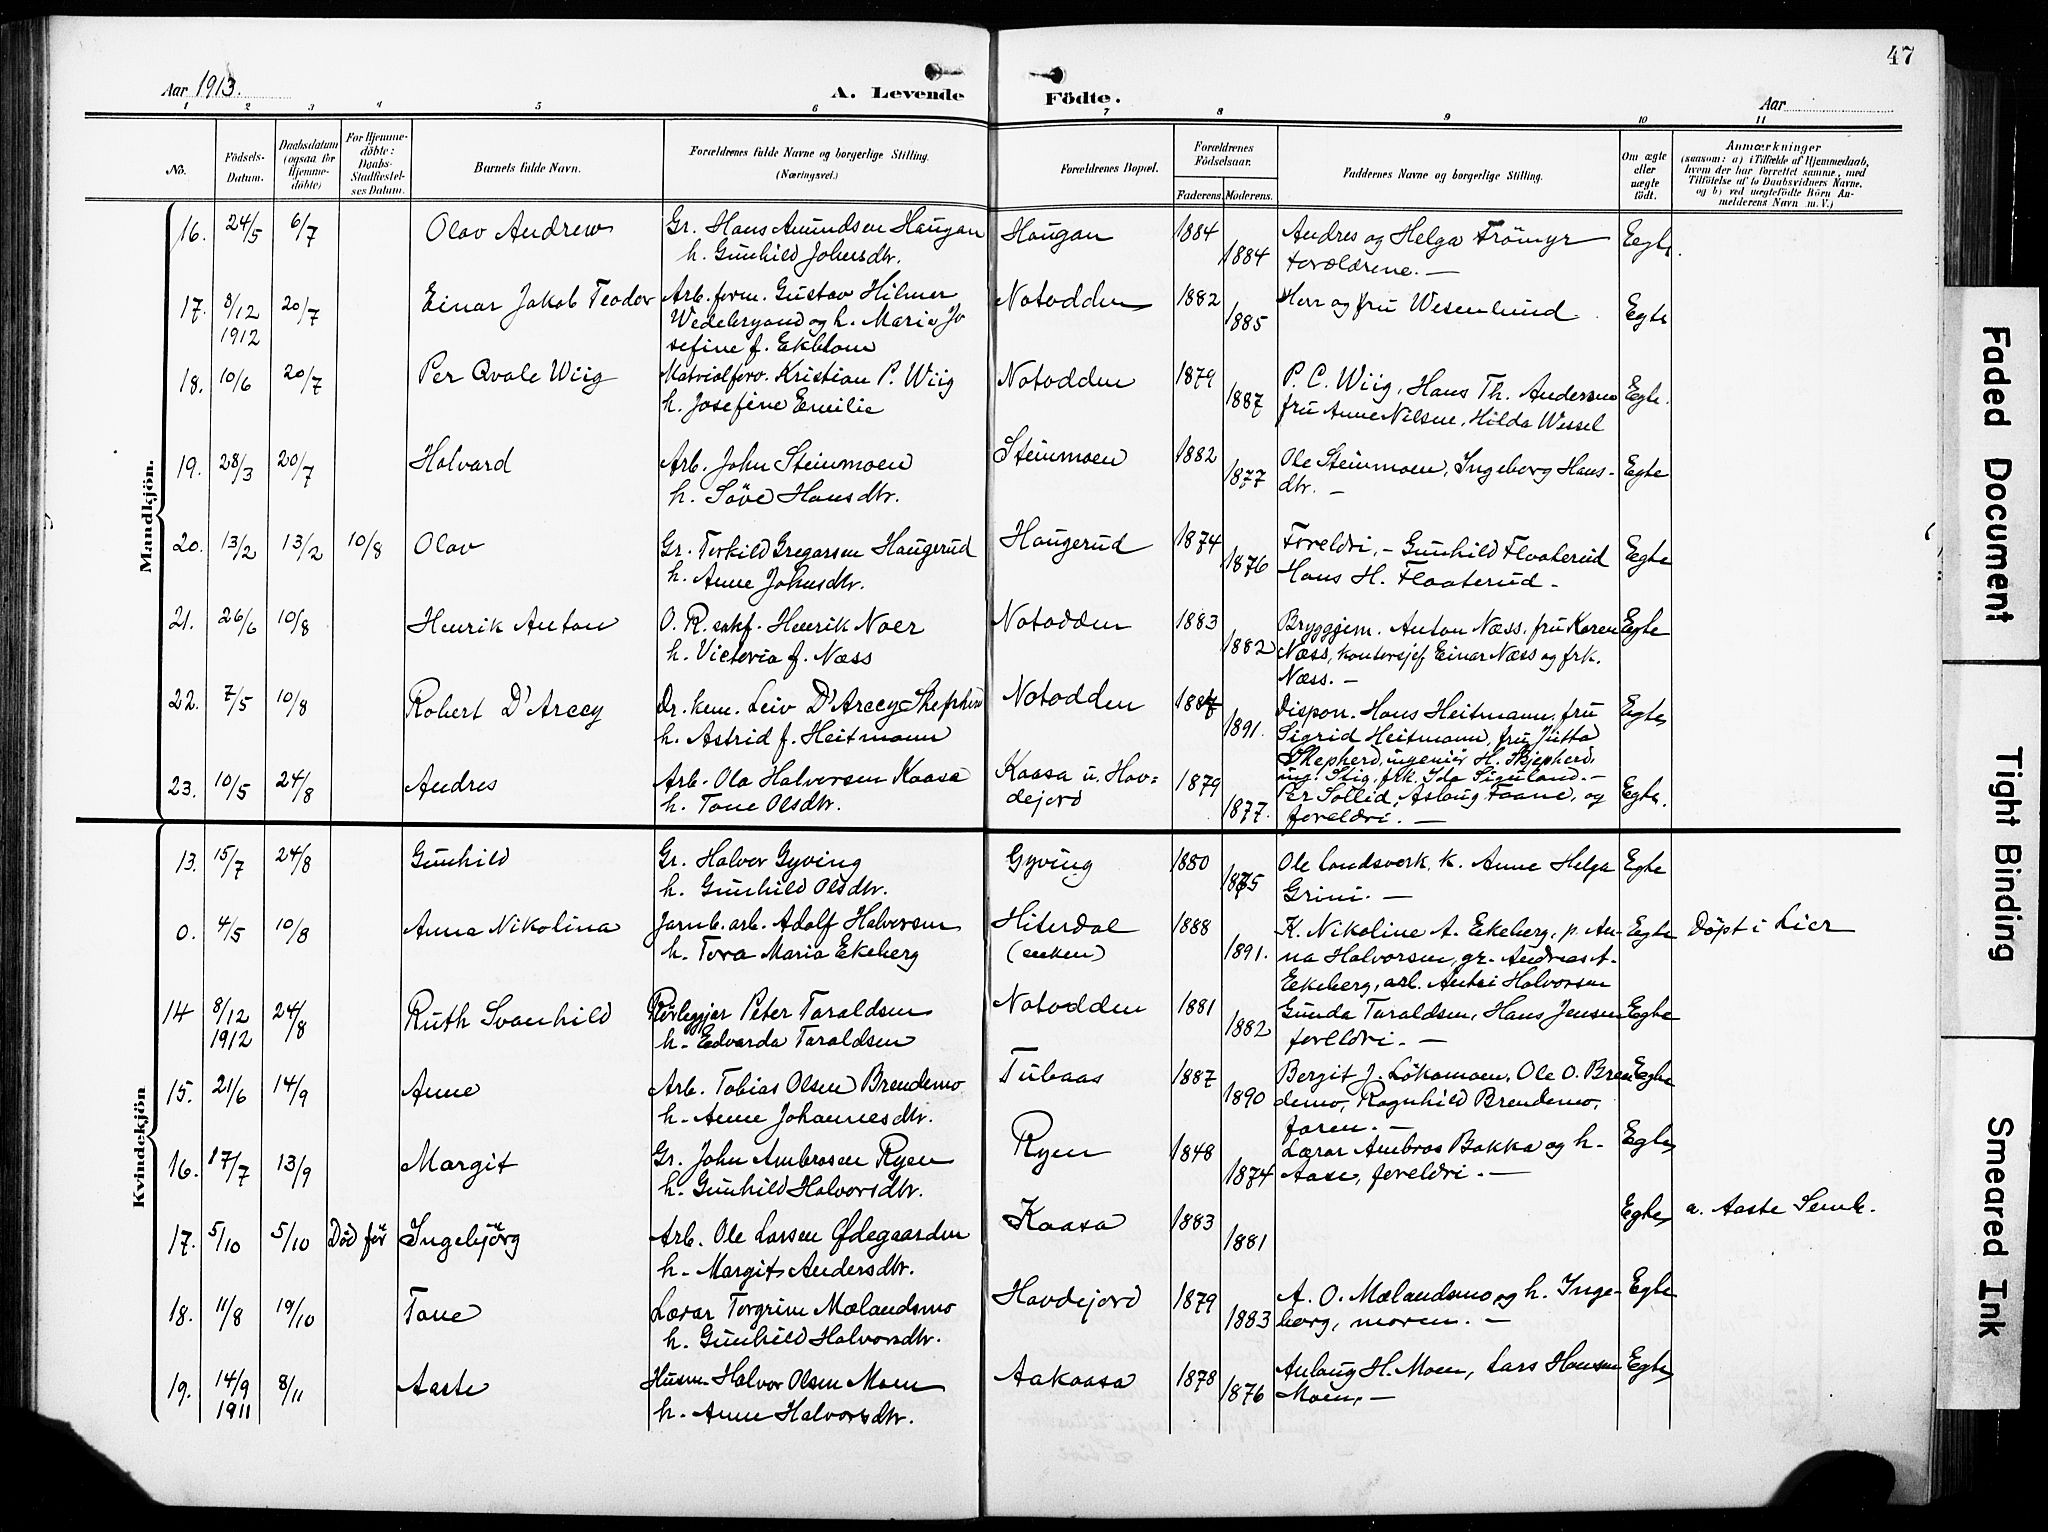 47
Aar 1913.
A. Levende Födte.
Aar
1 2 3 4 5 6 7 8 9 10 11
No.
Födsels-Datum.
Daabsdatum (ogsaa for Hjemme-döbte)
For Hjemme-döbte: Daabs-Stadfæstel-ses Datum.
Barnets fulde Navn.
Forældrenes fulde Navne og borgerlige Stilling.
(Næringsvei.)
Forældrenes Bopæl.
Forældrenes Födselsaar.
Faderens. Moderens.
Faddernes Navne og borgerlige Stilling.
Om ægte eller uægte födt.
Anmærkninger
(saasom: a) i Tilfælde af Hjemmedaab, hvem der har forrettet samme, med Tilföielse af to Daabsvidners Navne, og b) ved uægtefödte Börn An-melderens Navn m. V.)
Mandkjön.
16. 24/5 6/7 Olav Andrew Gr. Hans Amundsen Haugan Haugan 1884 Andres og Helga Frömyr Egte.
h. Gunhild Johnsdtr. 1884 forældrene. —
17. 8/12 20/7 Einar Jakob Teodor Arb. form. Gustav Hilmer Notodden 1882 Herr og fru Wesenlund Egte
1912 Wedebryand og h. Maria Jo 1885
sefine f. Ekblom
18. 10/6 20/7 Per Qvale Wiig Matrialforv. Kristian P. Wiig Notodden 1879 P. C. Wiig, Hans Th. Andersen Egte.
h. Josefine Emilie 1887 fru Anne Nilsen, Hilda Wessel
19. 28/3 20/7 Halvard Arb. John Steinmoen Steinmoen 1882 Ole Steinmoen, Ingeborg Hans- Egte
h. Söve Hansdtr. 1877 dtr. —
20. 13/2 13/2 10/8 Olav Gr. Torkild Gregarsen Haugerud Haugerud 1874 Foreldri, - Gunhild Flaaterud Egte
h. Anne Johnsdtr. 1876 Hans H. Flaaterud -
21. 26/6 10/8 Henrik Anton O. R. sakf. Henrik Noer Notodden 1883 Bryggjem. Anton Næss. fru Karen Egte
h. Victoria f. Næss 1882 Næss, kontorsjef Einar Næss og frk.
Næss. —
22. 7/5 10/8 Robert D'Arcey Dr. kem. Leiv D'Arcey Shepherd Notodden 1887 Dispon. Hans Heitmann, fru Egte
h. Astrid f. Heitmann 1891. Sigrid Heitmann, fru Jutta
Shepherd, ingeniør H. Shepherd,
ing. Stig, frk. Ida Siguland. -
23. 10/5 24/8 Andres Arb. Ola Halvorsen Kaasa Kaasa u. Hov= 1879 Per Sollid, Aslaug Faane, og Egte.
h. Tone Olsdtr. dejord 1877. foreldri. —
Kvindekjön
13. 15/7 24/8 Gunhild Gr. Halvor Gyving Gyving 1880 Ole Landsverk, k. Anne Helga Egte
h. Gunhild Olsdtr. 1875 Grini. —
0. 4/5 10/8 Anna Nikolina Jarnb. arb. Adolf Halvorsen Hiterdal 1888 K. Nikoline A. Ekeberg, p. An- Egte Döpt i Lier
h. Tora Maria Ekeberg 1891. na Halvorsen, gr. Andreas A.
Ekeberg, arb. Anton Halvorsen
14 8/12 24/8 Ruth Svanhild Rörleggjar Peter Taraldsen Notodden 1881 Gunda Taraldsen, Hans Jensen Egte
1912 h. Edvarda Taraldsen 1882 foreldri. —
15. 21/6 14/9 Anne Arb. Tobias Olsen Brendemo Tubaas 1887 Bergit J. Lökamoen, Ole O. Bren Egte
h. Anne Johannesdtr. 1890 demo, Ragnhild Brendemo,
faren. —
16. 17/7 13/9 Margit Gr. John Ambrosen Ryen Ryen 1848 Lærar Ambros Bakka og h. Egte
h. Gunhild Halvorsdtr. 1874 Aase, foreldri. —
17. 5/10 5/10 Död för Ingebjörg Arb. Ole Larsen Ødegaarden Kaasa 1883 Egte a. Aaste Semb.
h. Margit Andersdtr. 1881
18. 11/8 19/10 Tone Lærar Torgrim Mælandsmo Hovdejord 1879 A. O. Mælandsmo og h. Inge- Egte
h. Gunhild Halvorsdtr. 1883 borg, moren. —
19. 14/9 8/11 Aaste Husm. Halvor Olsen Moen Aakaasa 1878 Anlaug H. Moen, Lars Hansen Egte
1911 h. Anne Halvorsdtr. 1876 Moen, —
Faded Document
Tight Binding
Smeared Ink